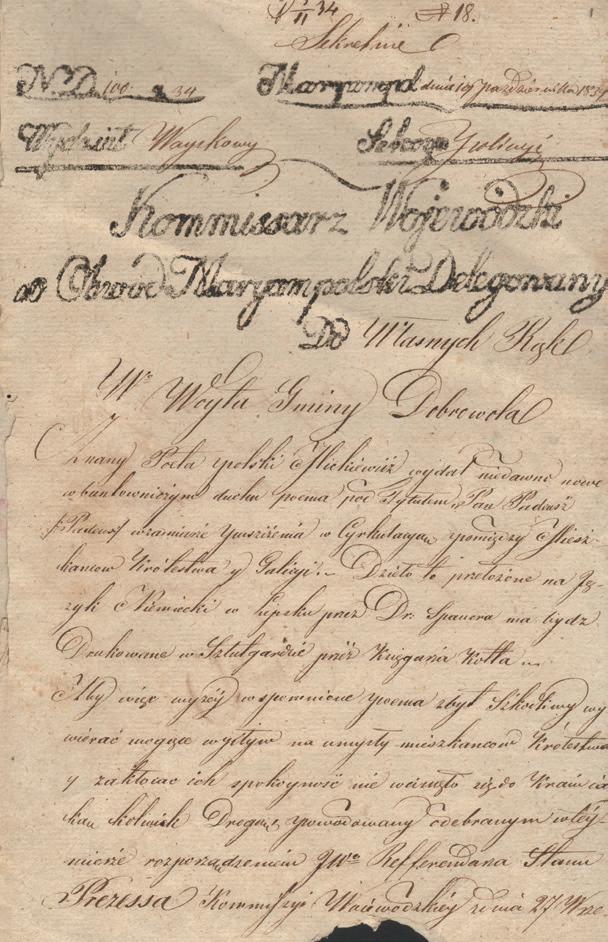 34 № 18.
Sekretnie
N. D. 100. 34 Maryampol dnia 19 Października 1834
Wydział Woyskowy Sekcya Policyi
Kommissarz Wojewodzki
w Obwód Maryampolski Delegowany
Do Własnych Rąk
Wo Woyta Gminy Dobrowola
Znany Poeta polski Mickiewicz wydał niedawno nowe
w buntowniczym duchu poema pod Tytułem, Pan Tadeusz
w zamiarze puszczenia w Cyrkulacyą pomiędzy Miesz-
kancow Królestwa y Galicyi. Dzieło to przełożone na Ję-
zyk Niemiecki w Lipsku przez Dr. Spaciera ma bydz
Drukowane w Sztutgardzie przez Księgarza Kotta
Aby więc wyżéy wspomnione poema zbyt Szkodliwy wy
wierać mogące wpływ na umysły mieszkancow Królestwa
y zakłocac ich spokoyność nie wcisnęło się do Kraiu ia
kąkolwiek Drogą, powodowany odebranym w téy-
mierze rozporządzeniem JWo Refferendarza Stanu
Prezessa Kommissyi Woiewodzkiey z dnia 27 Wrze